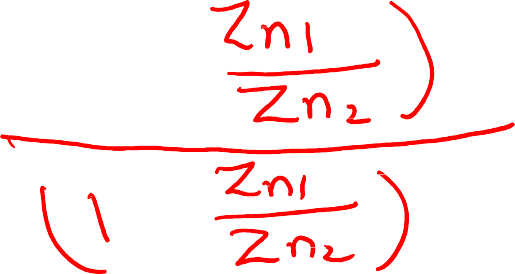 Zn1
Zn2 )
( 1 Zn1 )
Zn2